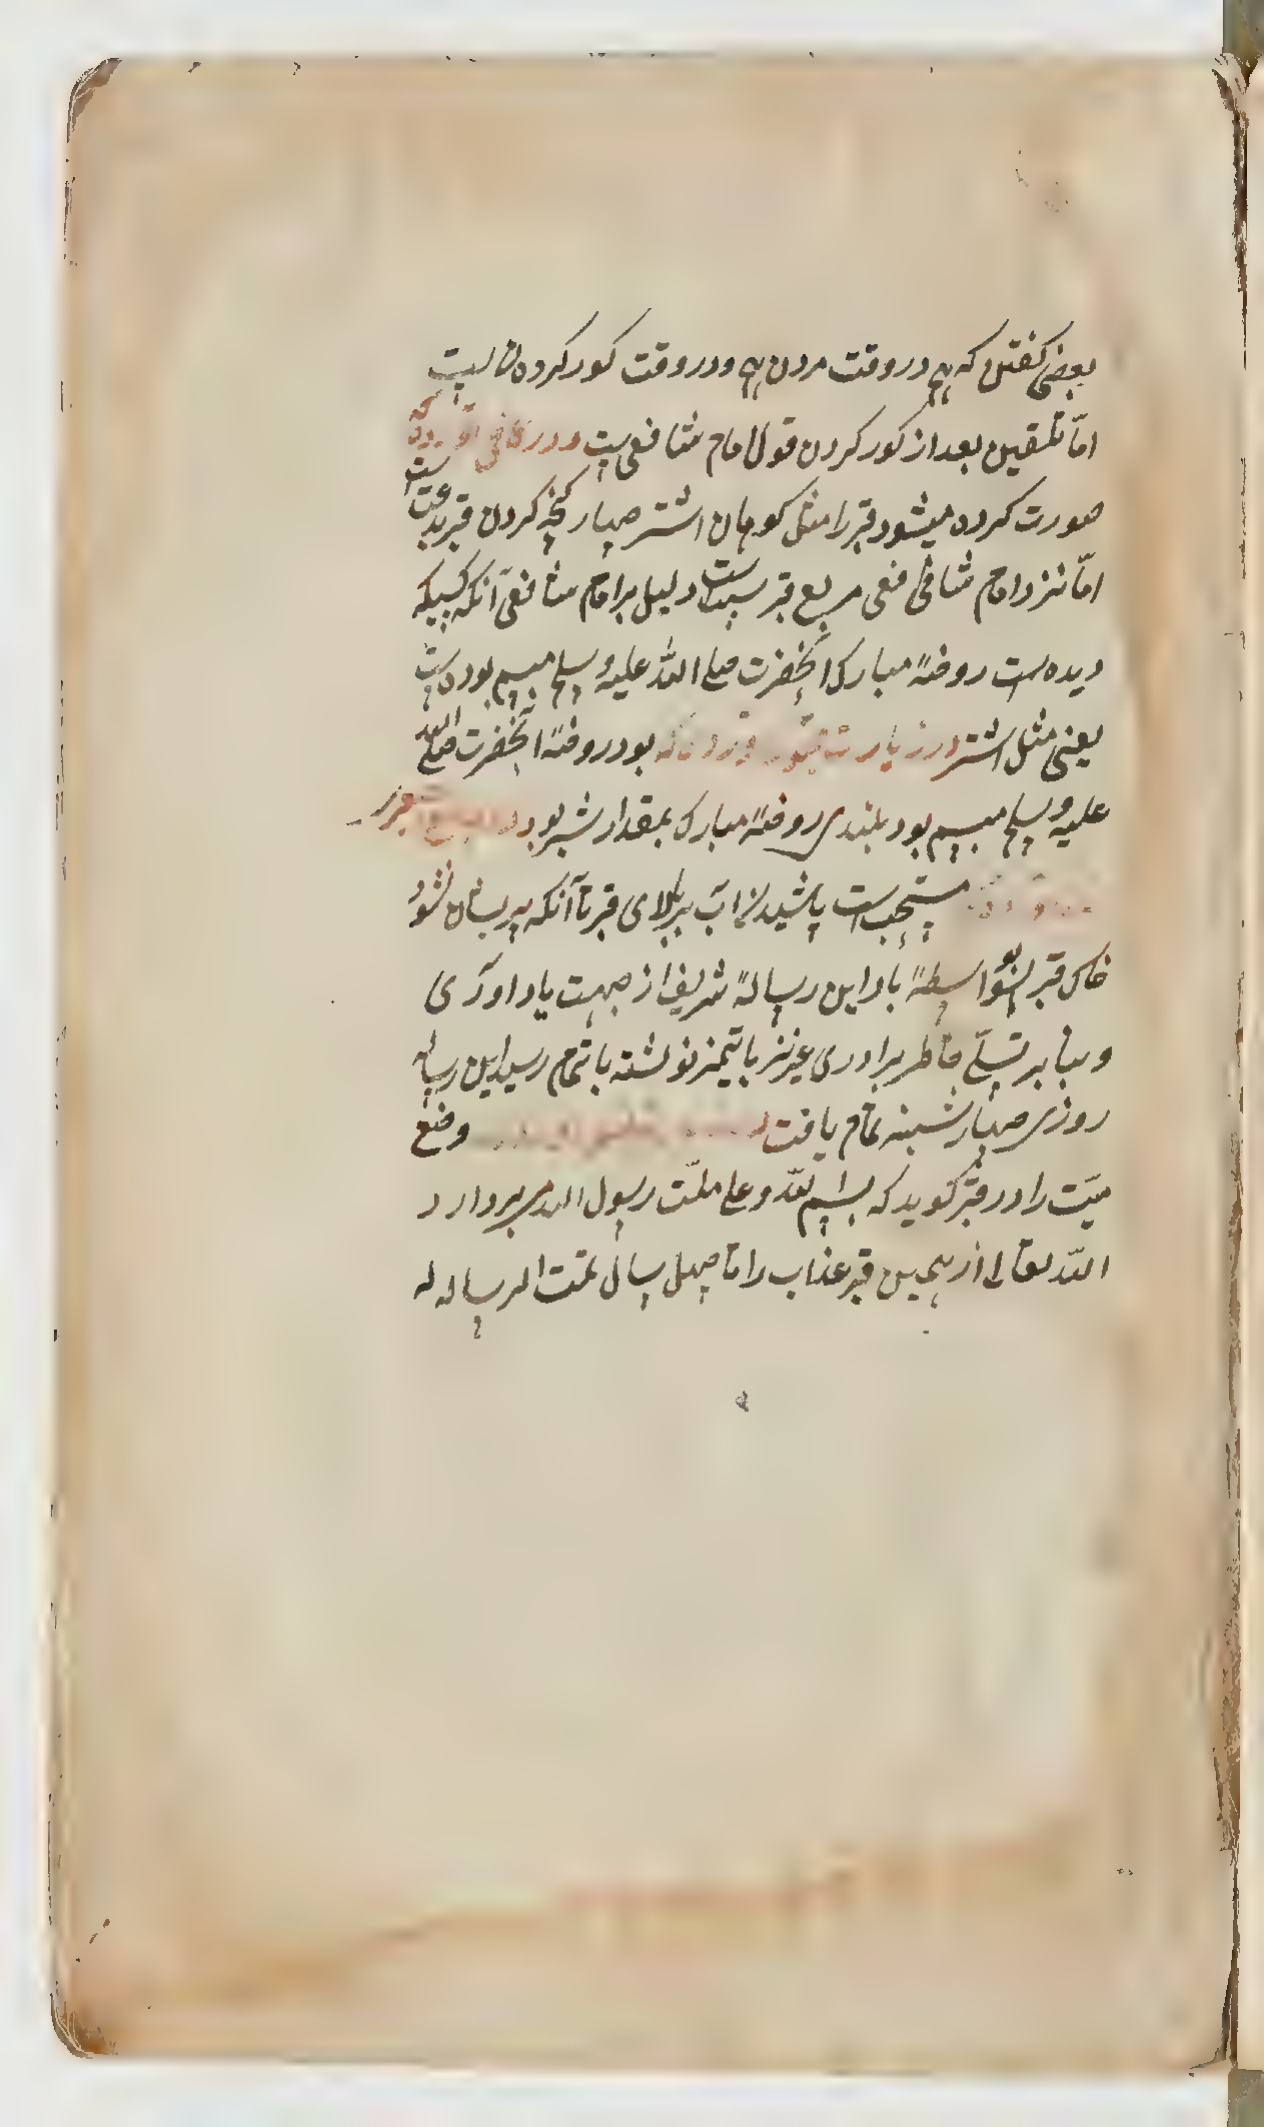 بعضی کفتن که هم در وقت مردن هم و در وقت کور کردن
امّا تلقین بعد از کور کردن قول امام شافعی ست و در کافی آورده که
صورت کرده میشود قبر را مثل کوهان اشتر چهار کنج کردن قبر بدعت است
امّا نزد امام شافی فعی مربع قبر سنت است دلیل بر امام شافعی آنکه کسیکه
دیده است روضهٔ مبارک آنحضرت صلی الله علیه وسلم مسنم بوده است
یعنی مثل اشتر در زیارت قبور آورده که بود روضهٔ آنحضرت صلی الله
علیه وسلم مسنم بود بلندی روضهٔ مبارک بمقدار شبر بود
مستحب است پاشیدن آب بر بالای قبر تا آنکه پریشان نشود
خاک قبر بواسطهٔ باد این رسالهٔ شریف از جهت یاد اوری
و بنابر تسلّی خاطر برادری عزیز با تمیز نوشته باتمام رسید این رساله
روزی چهار شنبه تمام یافت وضع
میّت را در قبر کوید که بسم الله و علی ملّت رسول الله بردارد
الله تعالی از همین قبر عذاب را تا چهل سال تمت الرساله